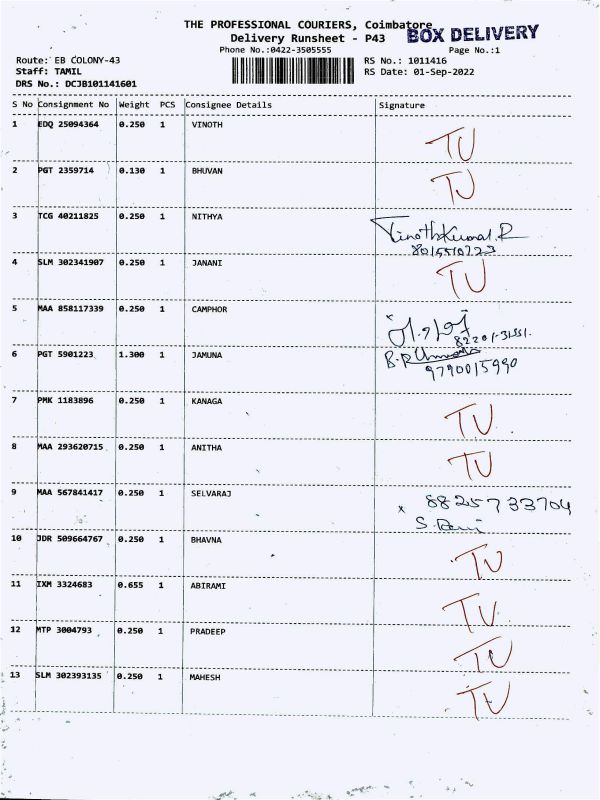 THE PROFESSIONAL COURIERS, Coimbatore
BOX DELIVERY
Delivery Runsheet - P43
Phone No.:0422-3505555
Page No.:1
Route: EB COLONY-43
RS No.: 1011416
Staff: TAMIL
RS Date: 01-Sep-2022
DRS No.: DCJB101141601
S No Consignment No Weight PCS Consignee Details Signature
1 EDQ 25094364 0.250 1 VINOTH TU
2 PGT 2359714 0.130 1 BHUVAN TU
3 TCG 40211825 0.250 1 NITHYA VinothKumar.R
4 SLM 302341907 0.250 1 JANANI TU
5 MAA 858117339 0.250 1 CAMPHOR
6 PGT 5901223 1.300 1 JAMUNA
9790015990
7 PMK 1183896 0.250 1 KANAGA TU
8 MAA 293620715 0.250 1 ANITHA TU
9 MAA 567841417 0.250 1 SELVARAJ x 8825733704
10 JDR 509664767 0.250 1 BHAVNA TU
11 IXM 3324683 0.655 1 ABIRAMI TU
12 MTP 3004793 0.250 1 PRADEEP TU
13 SLM 302393135 0.250 1 MAHESH TU